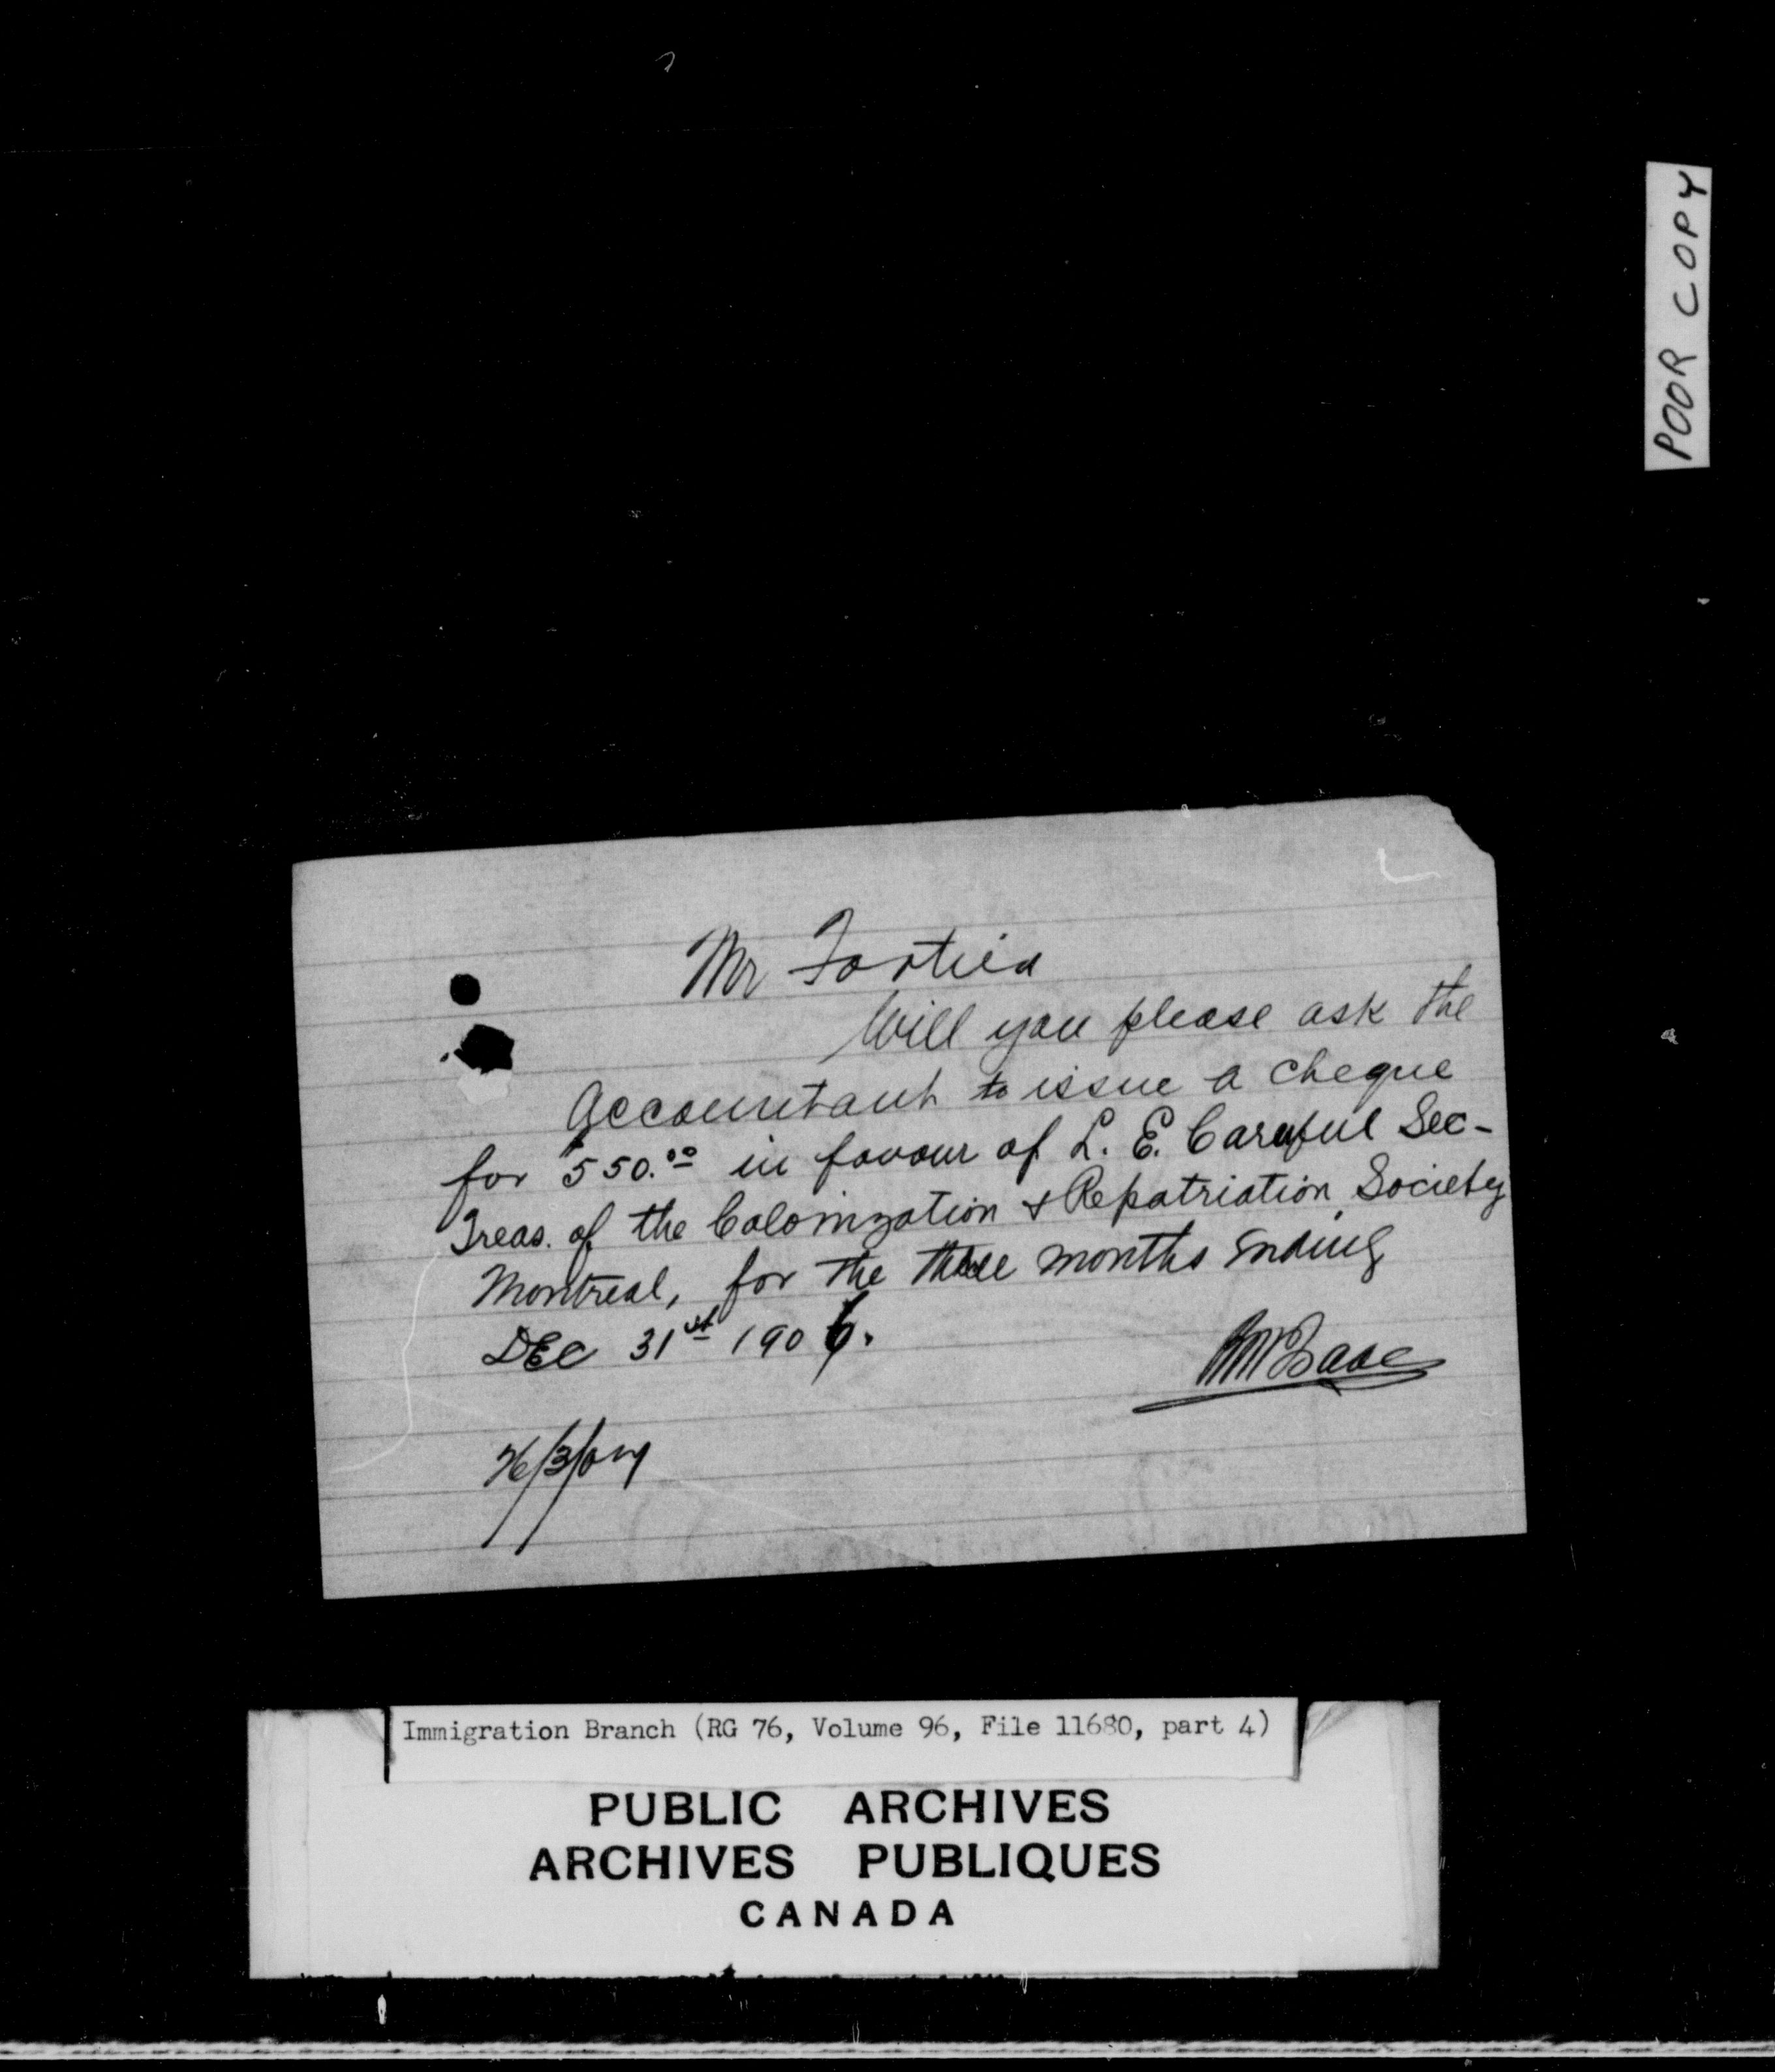 POOR COPY
Mr Fortier
Will you please ask the
Accountant to issue a cheque
for $550.00 in favour of L. E. Carufel Sec-
Treas. of the Colonization & Repatriation Society
Montreal, for the three months ending
DEC 31st 1906.
26/3/07
Immigration Branch (RG 76, Volume 96, File 11680, part 4)
PUBLIC ARCHIVES
ARCHIVES PUBLIQUES
CANADA